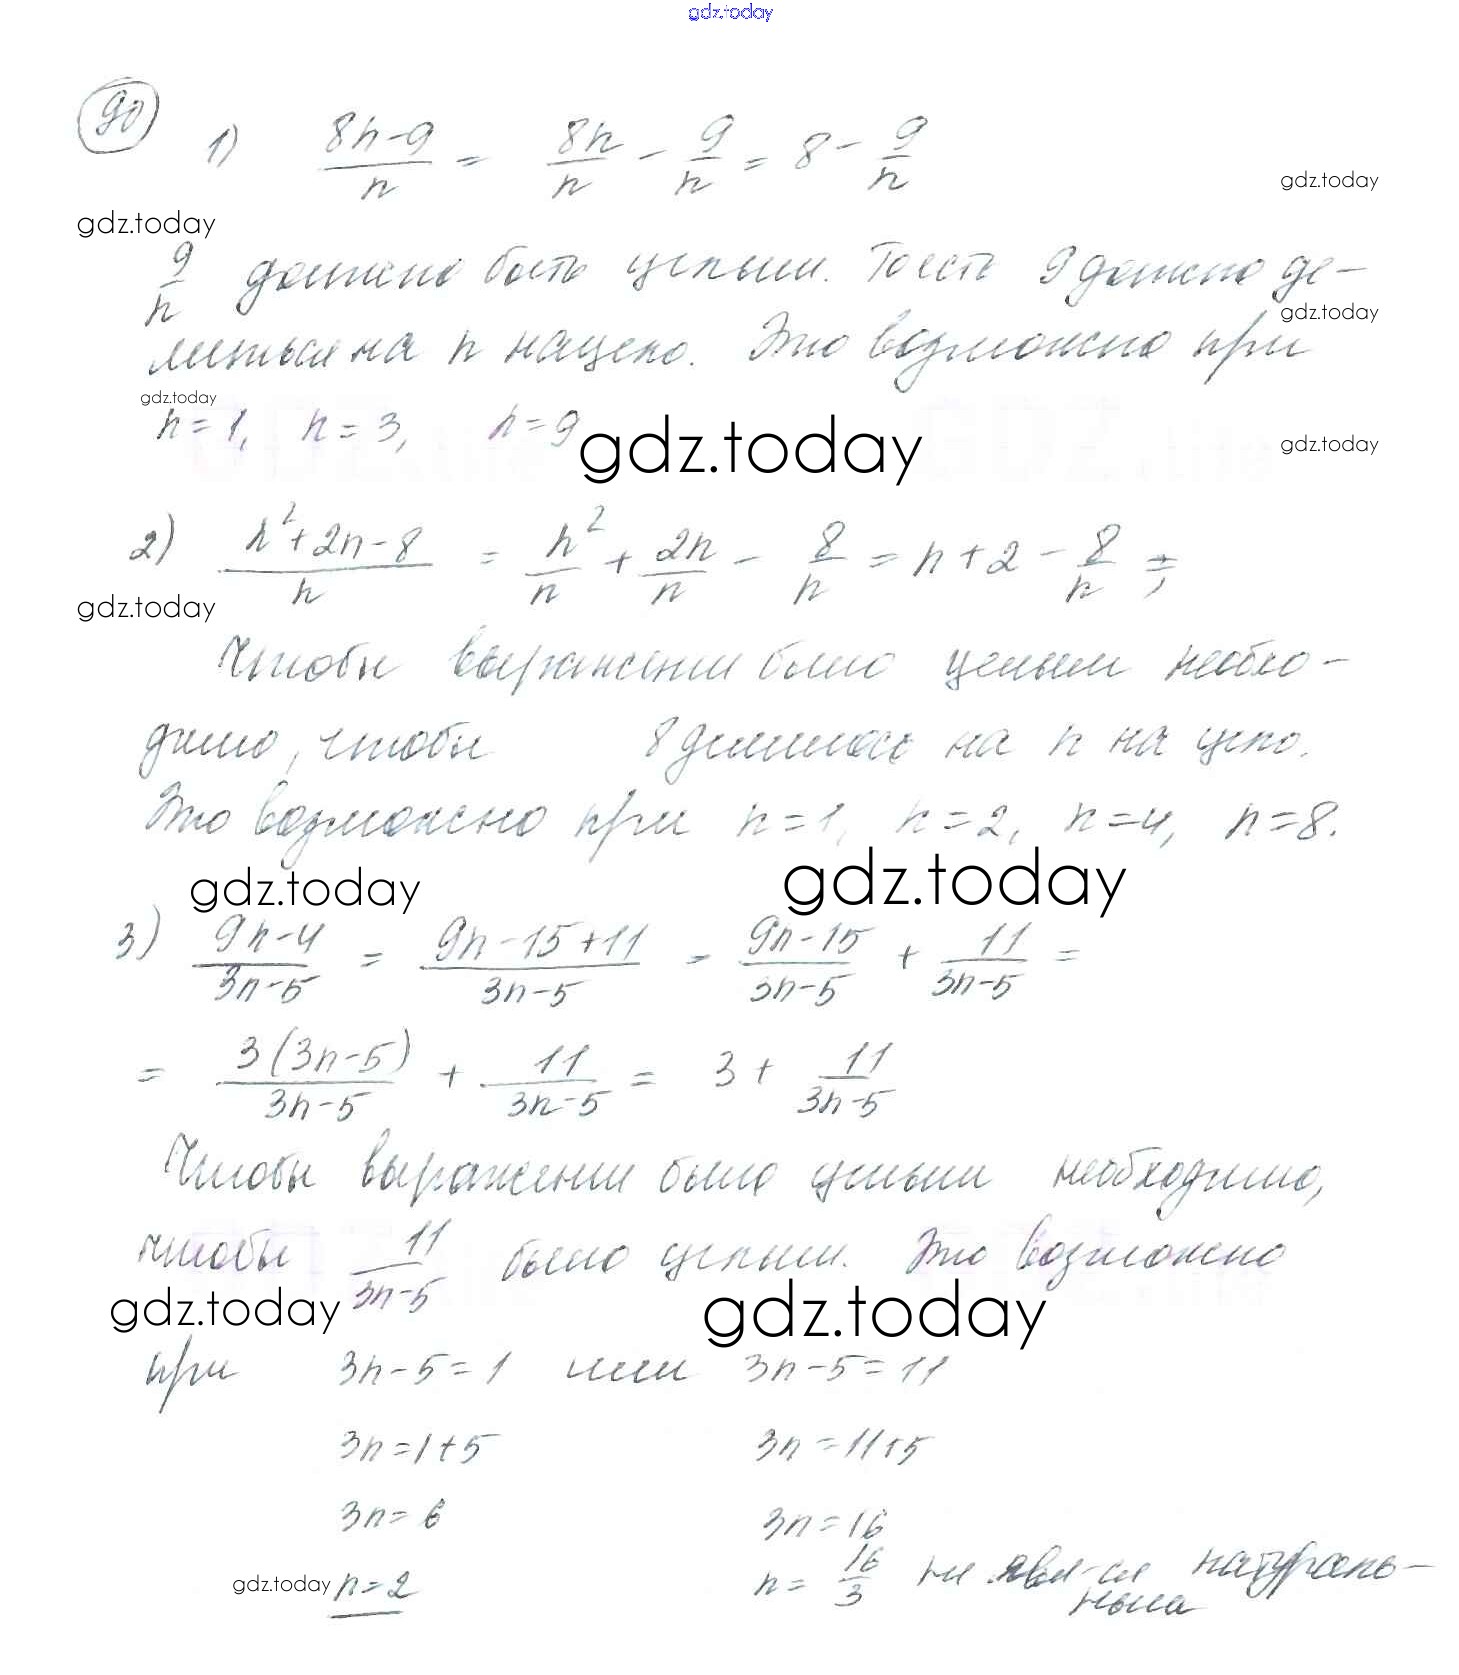 gdz.today
90
1) (8n-9)/n = 8n/n - 9/n = 8 - 9/n
gdz.today
gdz.today
9/n должно быть целым. То есть 9 должно де-
gdz.today
литься на n нацело. Это возможно при
gdz.today
n=1, n=3, n=9
gdz.today
gdz.today
2) (n²+2n-8)/n = n²/n + 2n/n - 8/n = n+2 - 8/n ;
gdz.today
Чтобы выражении было целым необхо-
димо, чтобы 8 делилось на n на цело.
Это возможно при n=1, n=2, n=4, n=8.
gdz.today
gdz.today
3) (9n-4)/(3n-5) = (9n-15+11)/(3n-5) = (9n-15)/(3n-5) + 11/(3n-5) =
= 3(3n-5)/(3n-5) + 11/(3n-5) = 3 + 11/(3n-5)
Чтобы выражении было целым необходимо,
чтобы 11/(3n-5) было целым. Это возможно
gdz.today
gdz.today
при 3n-5=1 или 3n-5=11
3n=1+5 3n=11+5
3n=6 3n=16
gdz.today
n=2 n=16/3 не явл-ся натураль-
ным